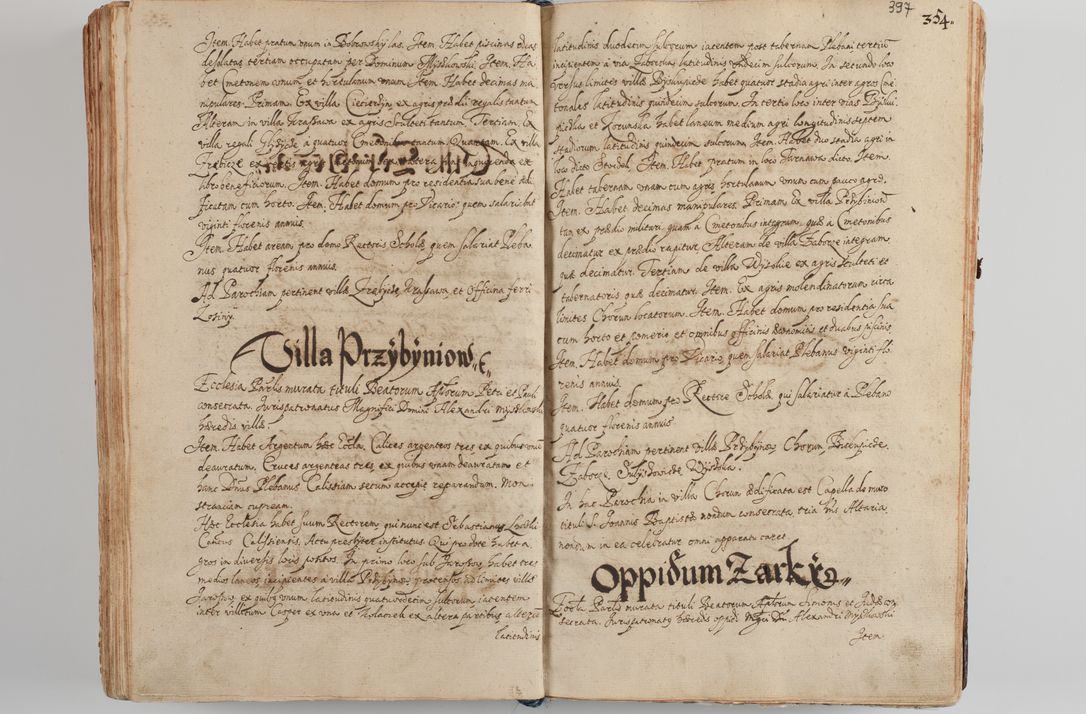 Item. Habet pratum unum in Bobrowsky las. Item. Habet piscinas duas
desolatas tertiam occupatam per Dominum Myszkowski. Item. Ha
bet Cmetonem unum, et hortulanum unum. Item. Habet decimas ma
nipulares. Primam. Ex villa Ciecierdyn ex agris praedii regalis tantum
Alteram in villa Krassawa ex agris Sculteti tantum. Tertiam. Ex
villa regali a quatuor Cmetonibus tantum. Quartam. Ex villa
Trebicze ex
libro beneficiorum. Item. Habet domum pro residentia sua bene aedi
ficatam cum horto. Item. Habet domum pro Vicario quem salariabat
viginti florenis annuis.
Item. Habet aream pro domo Rectoris Scholae quem salariat Pleba
nus quatuor florenis annuis.
Ad Parochiam pertinent villae Trebicze, Krassawa, et Officina ferri
Łosiny.
Villa Przÿbÿniow.
Ecclesia Parlis murata tituli Beatorum Aplorum Petri et Pauli
consecrata. Jurispatronatus Magnifici Domini Alexandri Myszkowski
haeredis villae.
Item. Habet Argentum haec Eccla, Calices argenteos tres, ex quibus unus
deauratum, Cruces argenteas tres, ex quibus unam deauratam et
hanc Dnus Plebanus Calissiam secum accepit reparandum. Mon
stranciam cupream.
Haec Ecclesia habet suum Rectorem qui nunc est Sebastianus
Canonicus Calissiensis, Actu presbiter institutus. Qui pro dote habet a
gros in diversis locis positos. In primo loco sub Jaroszow, habet tres
medios laneos, incipientes a villa Przybynow, protensos ad limites villae
Jaroszow, ex quibus unum latitudinis quatuordecim sulcorum, iacentem
inter villicum Casper ex una et Kolaniek ex altera partibus, alterum
latitudinis
397
354.
latitudinis duodecim sulcorum iacentem post tabernam Plebani tertium
incipientem a via Zaborska latitudinis undecim sulcorum. In secundo loco
versus limites villae habet quatuor stadia agri inter agros Cme
tonales latitudinis quindecim sulcorum. In tertio loco inter vias
et habet laneum medium agri longitudinis septem
stadiorum latitudinis quindecim sulcorum Item. Habet duo stadia agri in
loco dicto Item. Habet pratum in loco Tarnawa dicto. Item.
Habet tabernam unam cum agris hortulanum unum cum pauco agro.
Item. Habet decimas manipulares. Primam Ex villa Przybinow
tam ex praedio militari, quam a Cmetonibus integram, quae a Cmetonibus
decimatur ex praedio rapitur. Alteram de villa Zaborze integram,
quae decimatur. Tertiam de villa Wysokie ex agris Sculteti et
tabernatoris quae decimatur. Item. Ex agris molendinatorum circa
limites Chorun locatorum. Item. Habet domum pro residentia sua
cum horto et pomerio et omnibus officinis oeconomicis et duabus piscinis
Item. Habet domum pro Vicario quem salariat Plebanus viginti flo
renis annuis.
Item. Habet domum pro Rectore Scholae qui salariatur a Plebano
quatuor florenis annuis
Ad Parochiam pertinent villae Przybynow, Chorun,
Zaborze, Wysoka.
In hac Parochia in villa Chorun aedificata est Capella de muro
tituli S. Joannis Baptistae nondum consecrata, tria habens Altaria,
nondum in ea celebratur omni apparatu caret
Oppidum Zarkÿ.
Eccla Parlis murata tituli Beatorum Aplorum Simonis et Judae con
secrata. Jurispatronatus haeredis oppidi Mgci Dni Alexandri Myszkowski
Item